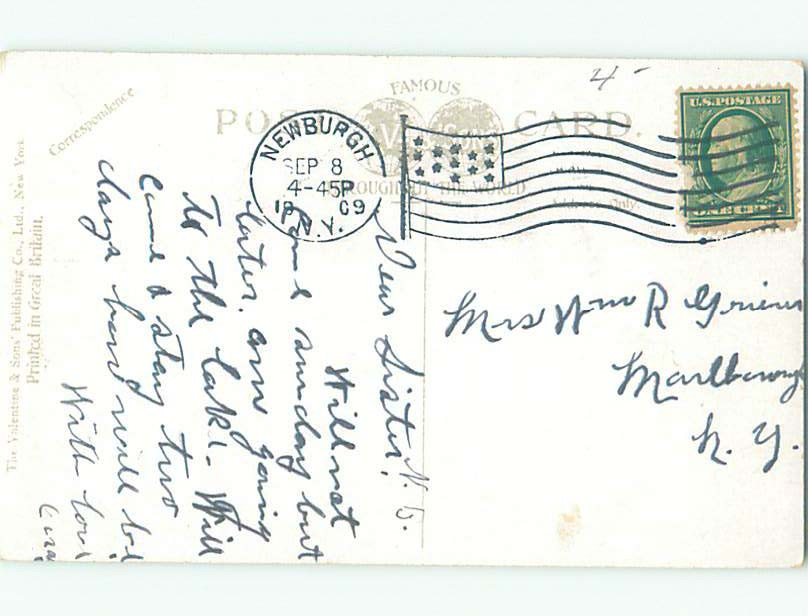 4-
FAMOUS
POST CARD.
VALENTINE & SONS
THROUGHOUT THE WORLD
Address Only.
NEWBURGH
SEP 8
4-45P
1909
N.Y.
U.S. POSTAGE
ONE CENT
Correspondence
The Valentine & Sons' Publishing Co., Ltd., New York.
Printed in Great Britain.
Dear Sister,
Will not
Come sunday but
later. am going
to the lake. Will
Come & stay two
days
With love
Mrs Wm R
Marlborough
N. Y.